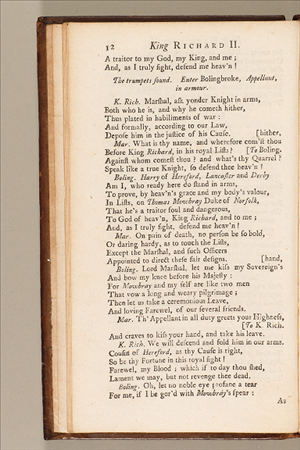 12 King RICHARD II.
A traitor to my God, my King, and me;
And, as I truly fight, defend me heav'n!
The trumpets sound. Enter Bolingbroke, Appellant,
in armour.
K. Rich. Marshal, ask yonder Knight in arms,
Both who he is, and why he cometh hither,
Thus plated in habiliments of war:
And formally, according to our Law,
Depose him in the justice of his Cause. [hither,
Mar. What is thy name, and wherefore com'st thou
Before King Richard, in his royal Lists? [To Boling.
Against whom comest thou? and what's thy Quarrel?
Speak like a true Knight, so defend thee heav'n!
Boling. Harry of Hereford, Lancaster and Derby
Am I, who ready here do stand in arms,
To prove, by heav'n's grace and my body's valour,
In Lists, on Thomas Mowbray Duke of Norfolk,
That he's a traitor foul and dangerous,
To God of heav'n, King Richard, and to me;
And, as I truly fight, defend me heav'n!
Mar. On pain of death, no person be so bold,
Or daring hardy, as to touch the Lists,
Except the Marshal, and such Officers
Appointed to direct these fair designs. [hand,
Boling. Lord Marshal, let me kiss my Sovereign's
And bow my knee before his Majesty:
For Mowbray and my self are like two men
That vow a long and weary pilgrimage;
Then let us take a ceremonious Leave,
And loving Farewel, of our several friends.
Mar. Th' Appellant in all duty greets your Highness,
[To K. Rich.
And craves to kiss your hand, and take his leave.
K. Rich. We will descend and fold him in our arms.
Cousin of Hereford, as thy Cause is right,
So be thy Fortune in this royal fight!
Farewel, my Blood; which if to day thou shed,
Lament we may, but not revenge thee dead.
Boling. Oh, let no noble eye profane a tear
For me, if I be gor'd with Mowbray's spear:
As